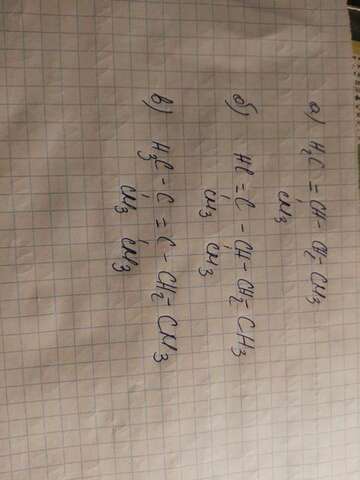 а) H₂C = CH - CH₂ - CH₃
CH₃
б) HC = C - CH - CH₂ - CH₃
CH₃ CH₃
в) H₃C - C = C - CH₂ - CH₃
CH₃ CH₃